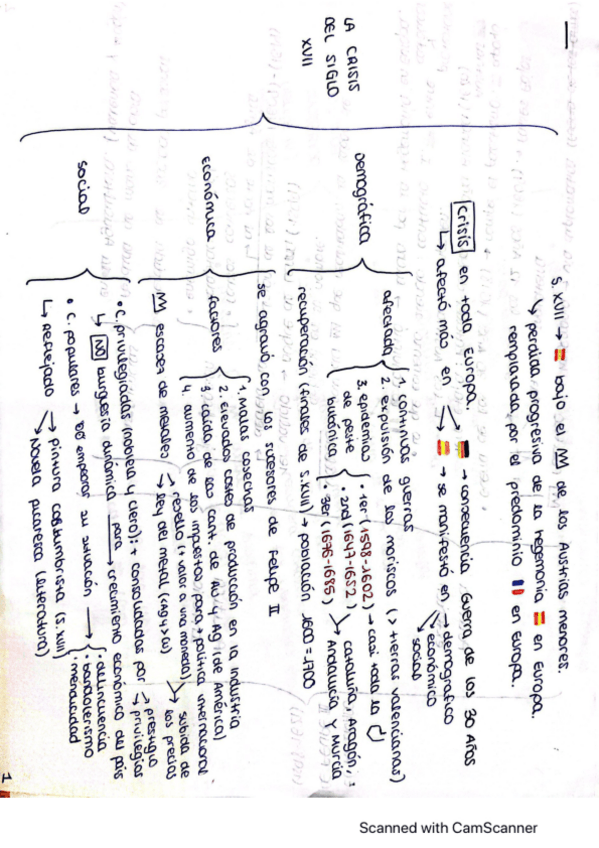 LA CRISIS
DEL SIGLO
XVII
S. XVII → bajo el M de los Austrias menores.
↳ perdida progresiva de la hegemonía en Europa.
remplazada por el predominio en Europa.
Crisis en toda Europa. → consecuencia Guerra de los 30 Años
↳ afectó más en → se manifestó en → demográfico
económico
social
Demográfica
afectada
1. continuas guerras
2. expulsión de los moriscos (> tierras valencianas)
3. epidemias de peste bubónica
• 1er (1598-1602) → casi toda la
• 2nd (1647-1652) → Cataluña, Aragón,
• 3er (1676-1685) Andalucía y Murcia
recuperación (finales de S. XVII) → población 1600 = 1700
económica
se agravó con los sucesores de Felipe II
factores
1. Malas cosechas
2. elevados costes de producción en la industria
3. caída de las cant. de Au y Ag (de América)
4. aumento de los impuestos para + política internacional
M escasez de metales → resello (+ valor a una moneda)
→ ley del metal (+Ag y >Cu)
subida de los precios
social
• C. privilegiadas (nobleza y clero): + consolidadas por → prestigio
→ privilegios
↳ M burguesía dinámica para → crecimiento económico del país
• C. populares → empeora su situación →
• delincuencia
• bandolerismo
• mendicidad
↳ Reflejado → pintura costumbrista (S. XVII)
→ Novela picaresca (literatura)
1
Scanned with CamScanner